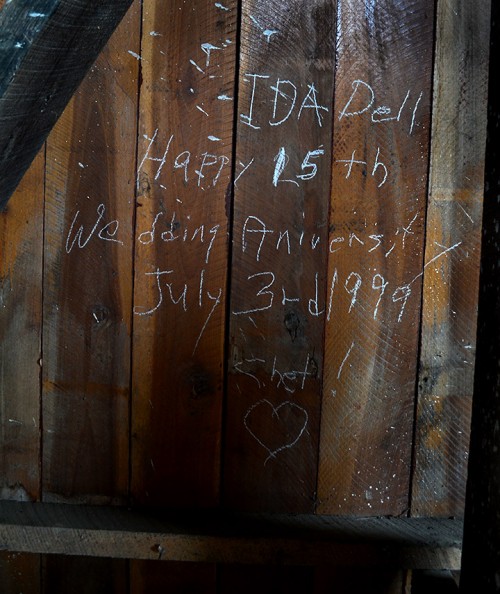 IDA Dell
Happy 15th
Wedding Aniversity
July 3rd 1999
Chet